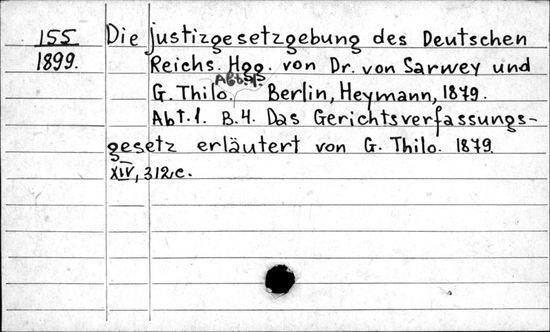 155
1899.
Die Justizgesetzgebung des Deutschen
Reichs. Hgg. von Dr. von Sarwey und
G. Thilo. Berlin, Heymann, 1879.
Abt. 1. B. 4. Das Gerichtsverfassungs-
gesetz erläutert von G. Thilo. 1879.
XIV, 312 c.